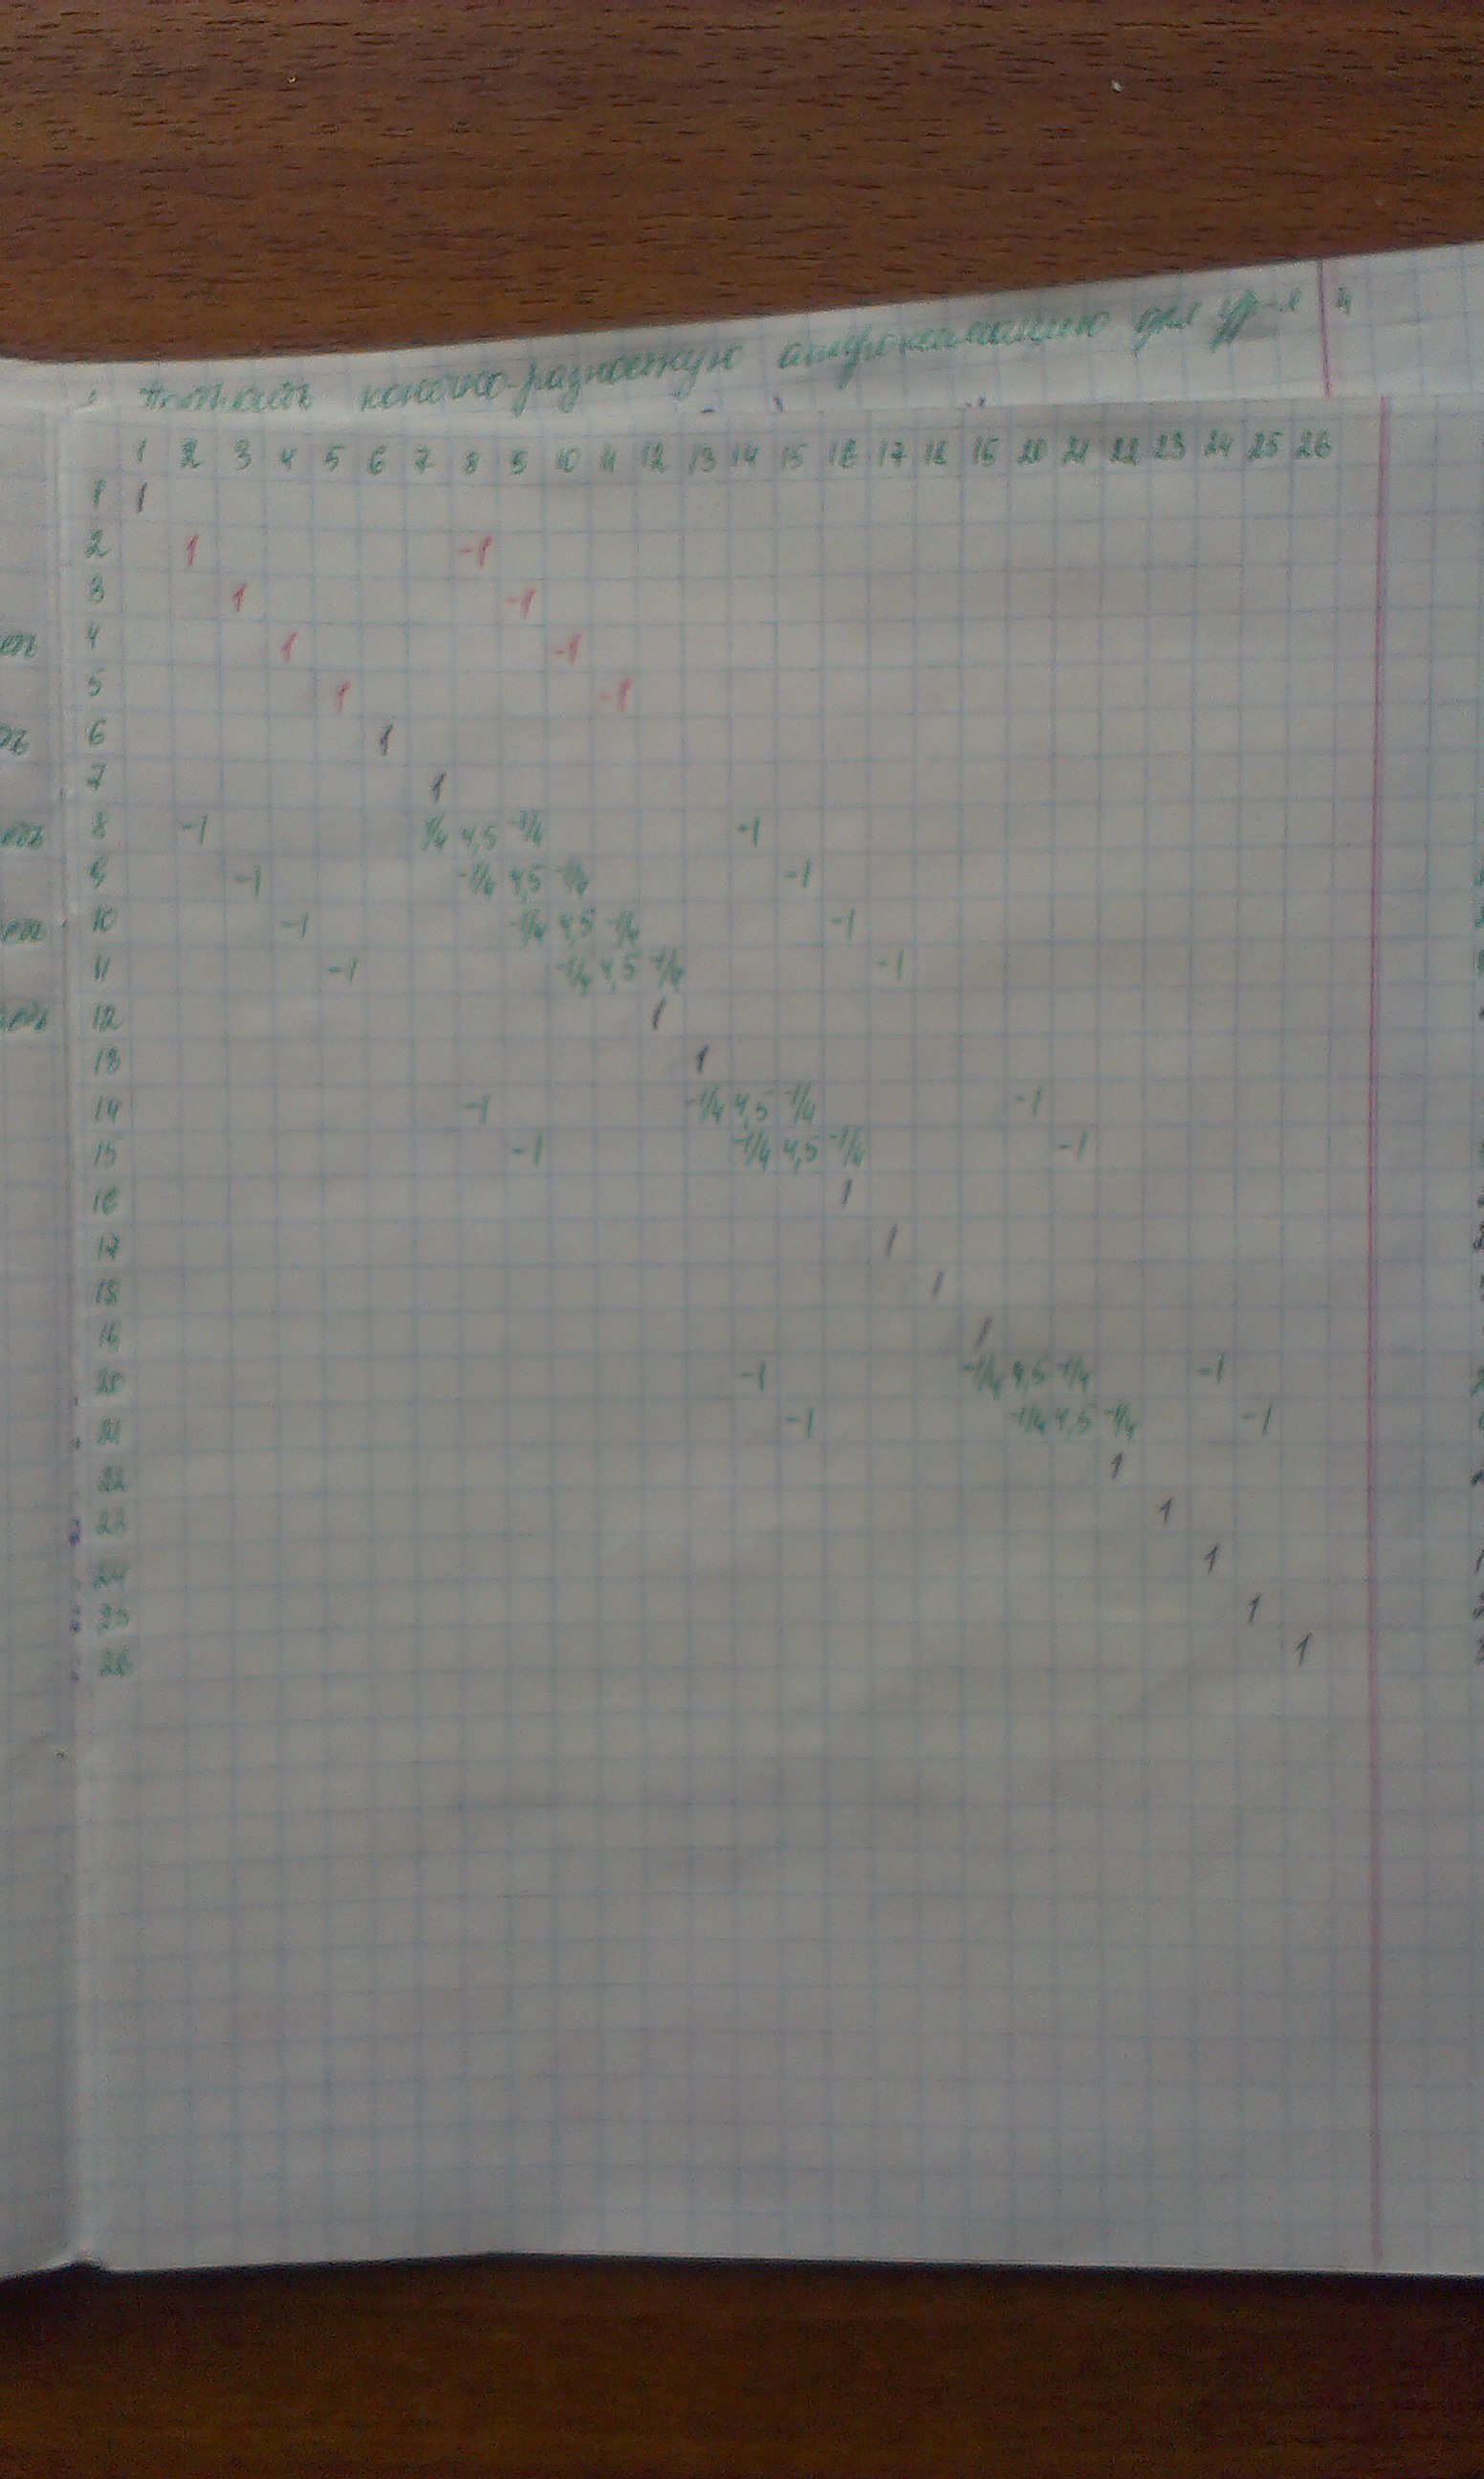 конечно-разностную аппроксимацию для ур-я 4
1 2 3 4 5 6 7 8 9 10 11 12 13 14 15 16 17 18 19 20 21 22 23 24 25 26
1 1
2 1 -1
3 1 -1
4 1 -1
5 1 -1
6 1
7 1
8 -1 1/4 4,5 -1/4 -1
9 -1 -1/4 4,5 -1/4 -1
10 -1 -1/4 4,5 -1/4 -1
11 -1 -1/4 4,5 -1/4 -1
12 1
13 1
14 -1 -1/4 4,5 -1/4 -1
15 -1 -1/4 4,5 -1/4 -1
16 1
17 1
18 1
19 1
20 -1 -1/4 4,5 -1/4 -1
21 -1 -1/4 4,5 -1/4 -1
22 1
23 1
24 1
25 1
26 1